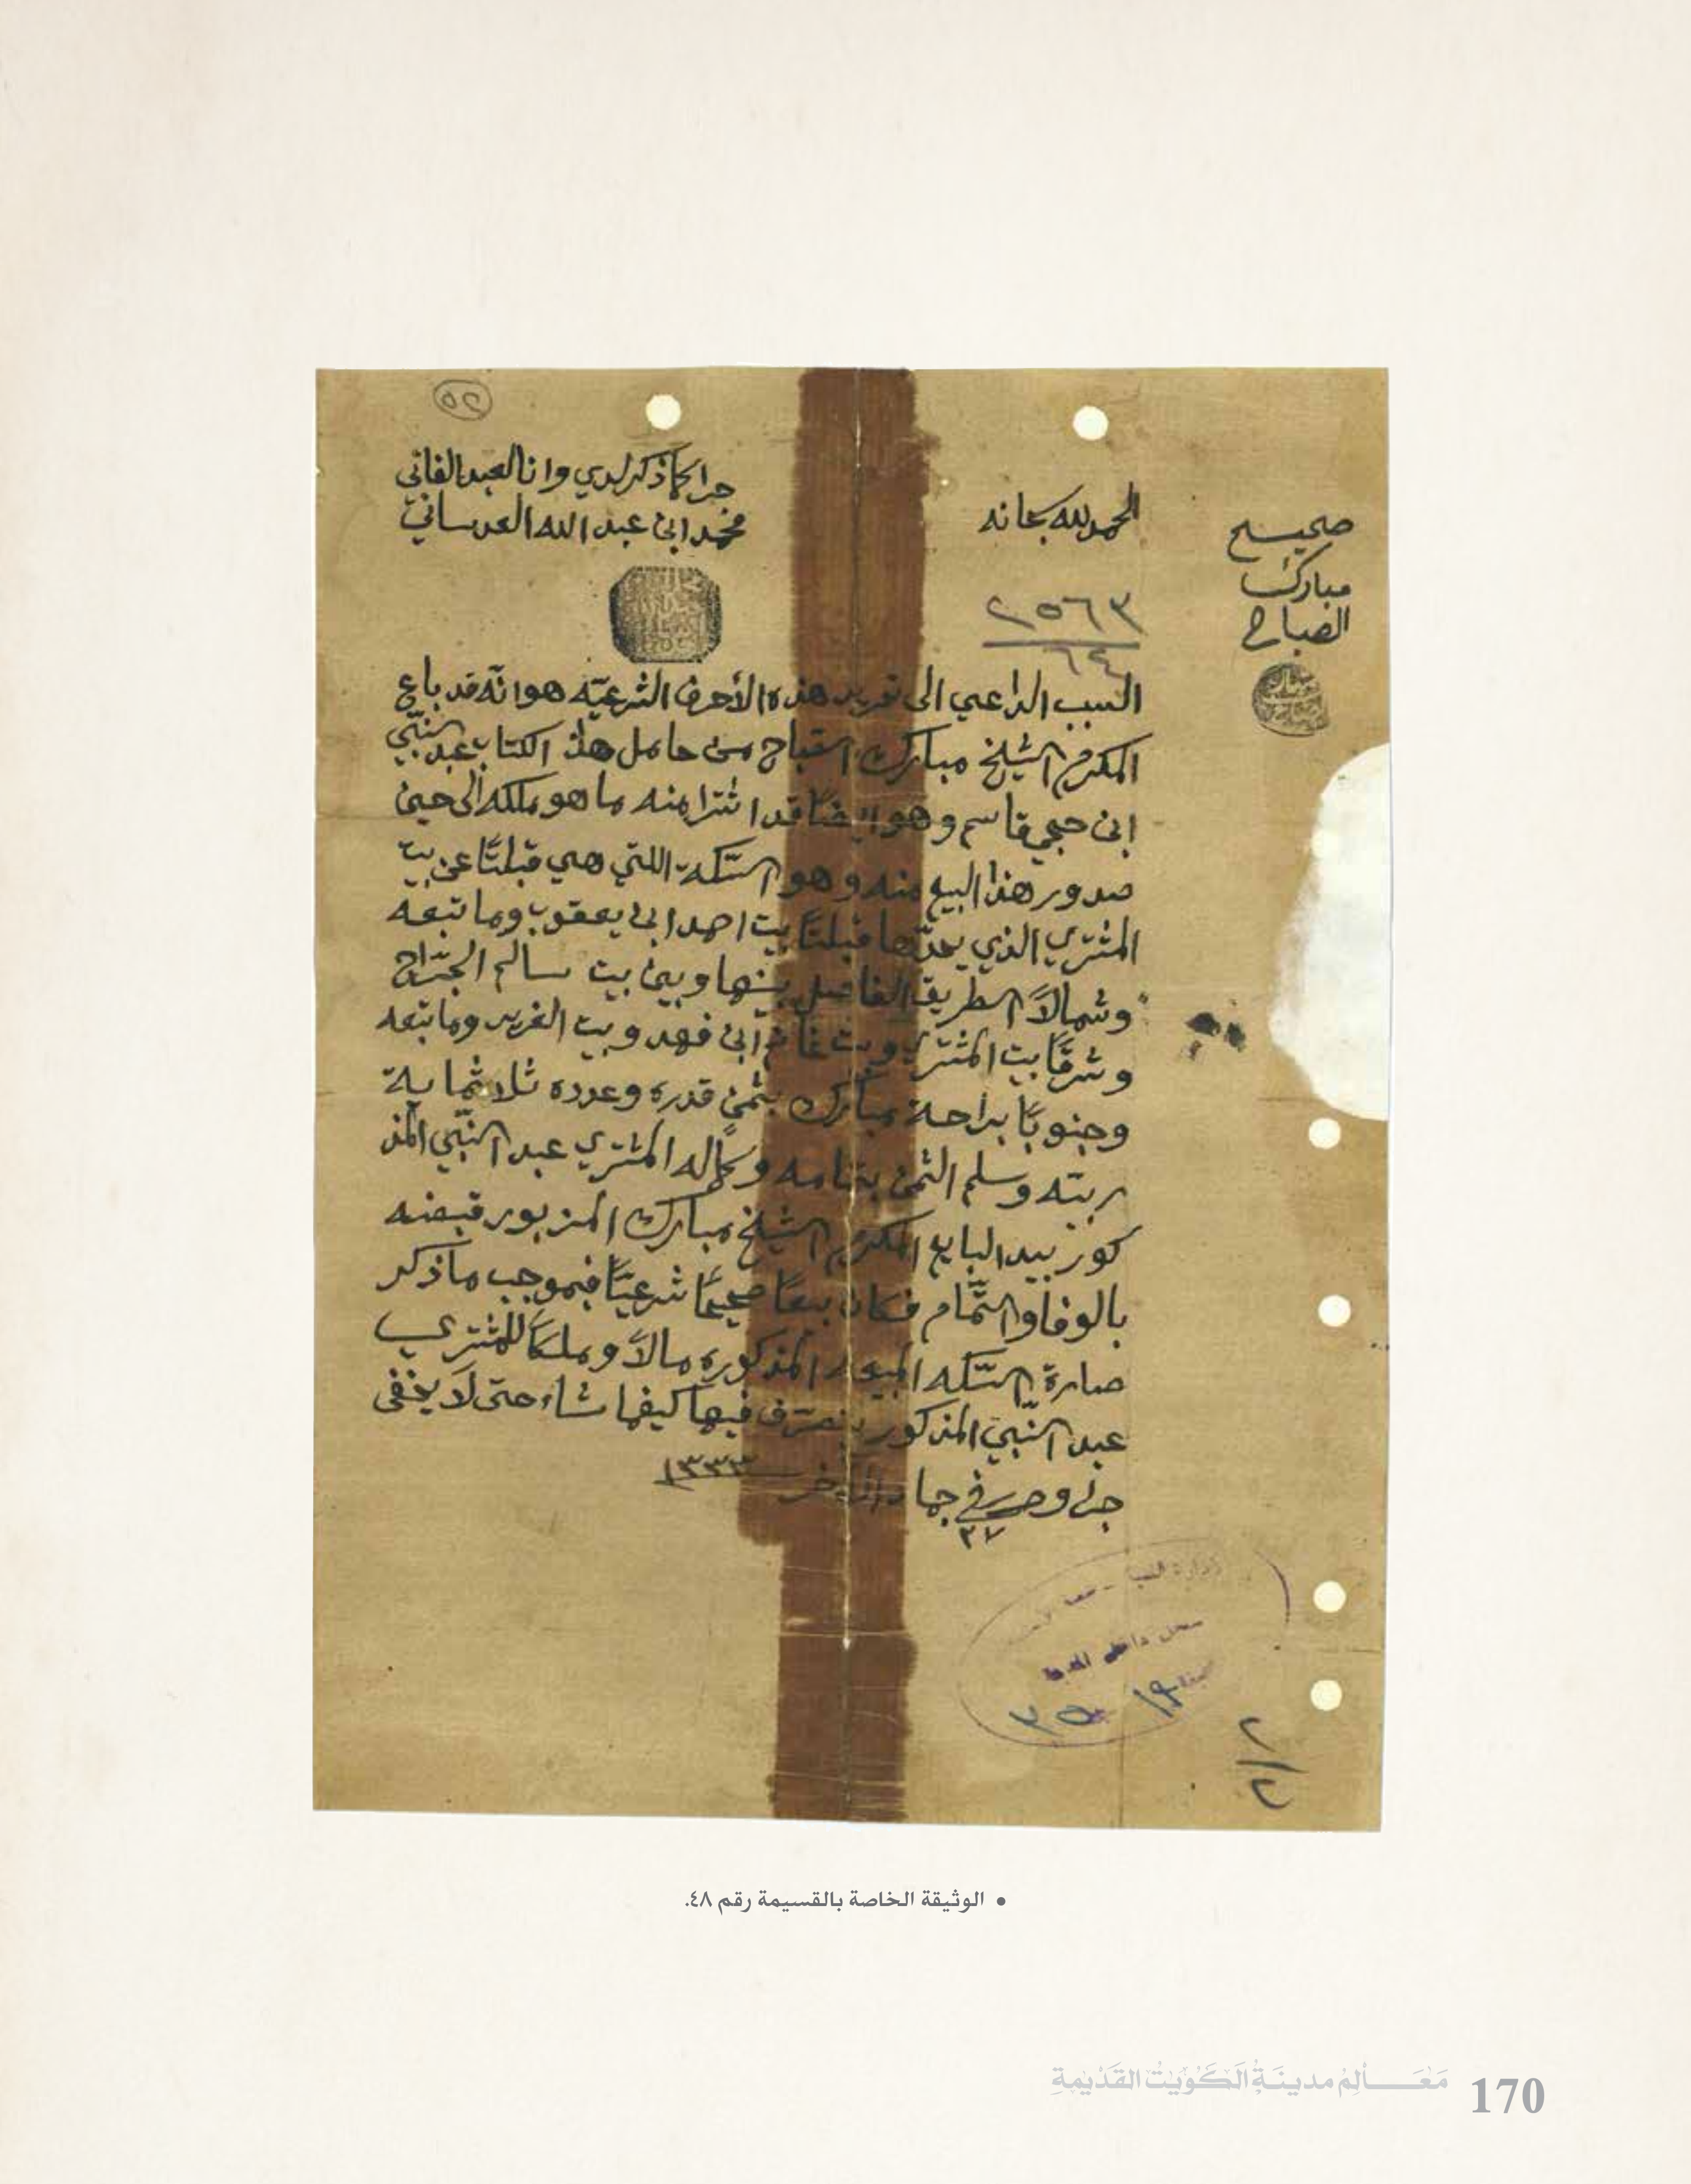 ٢٥
جرا كما ذكر لدي وانا العبد الفاني
محمد ابن عبد الله العدساني
الحمد لله سبحانه
صحيح
مبارك
الصباح
٢٥٦٣
٦٤
السبب الداعي الى تحرير هذه الأحرف الشرعيّه هو انّه قد باع
المكرم الشيخ مبارك الصّباح من حامل هذا الكتاب عبد النّبي
ابن حجي قاسم وهو ايضًا قد اشترا منه ما هو ملكه الى حين
صدور هذا البيع منه وهو السّكه اللتي هي قبلتًا عن بيت
المشتري الذي يحدّها قبلتًا بيت احمد ابن يعقوب وما تبعه
وشمالاً الطريق الفاصل بينها وبين بيت سالم الجرّاح
وشرقًا بيت المشتري وبيت غانم ابن فهد وبيت الغريب وما تبعه
وجنوبًا براحة مبارك بثمنٍ قدره وعدده ثلاثماية
ربيّه وسلم الثمن بتمامه وكماله المشتري عبد النّبي المذ
كور بيد البايع المكرم الشيخ مبارك المزبور قبضه
بالوفا والتّمام فكان بيعًا صحيحًا شرعيًّا فبموجب ما ذكر
صارة السّكه المبيوعه المذكوره مالاً وملكًا للمشتري
عبد النّبي المذكور يتصرّف فيها كيفما شاء حتى لا يخفى
جرى وحرر في ٢٧ جماد الآخر ١٣٣٣
سجل داخل المدينة
١٩
٣٥
٢/٢
• الوثيقة الخاصة بالقسيمة رقم ٤٨.
170 مَعَالِمُ مدينَةِ الكُوَيْت القَدْيمَةِ